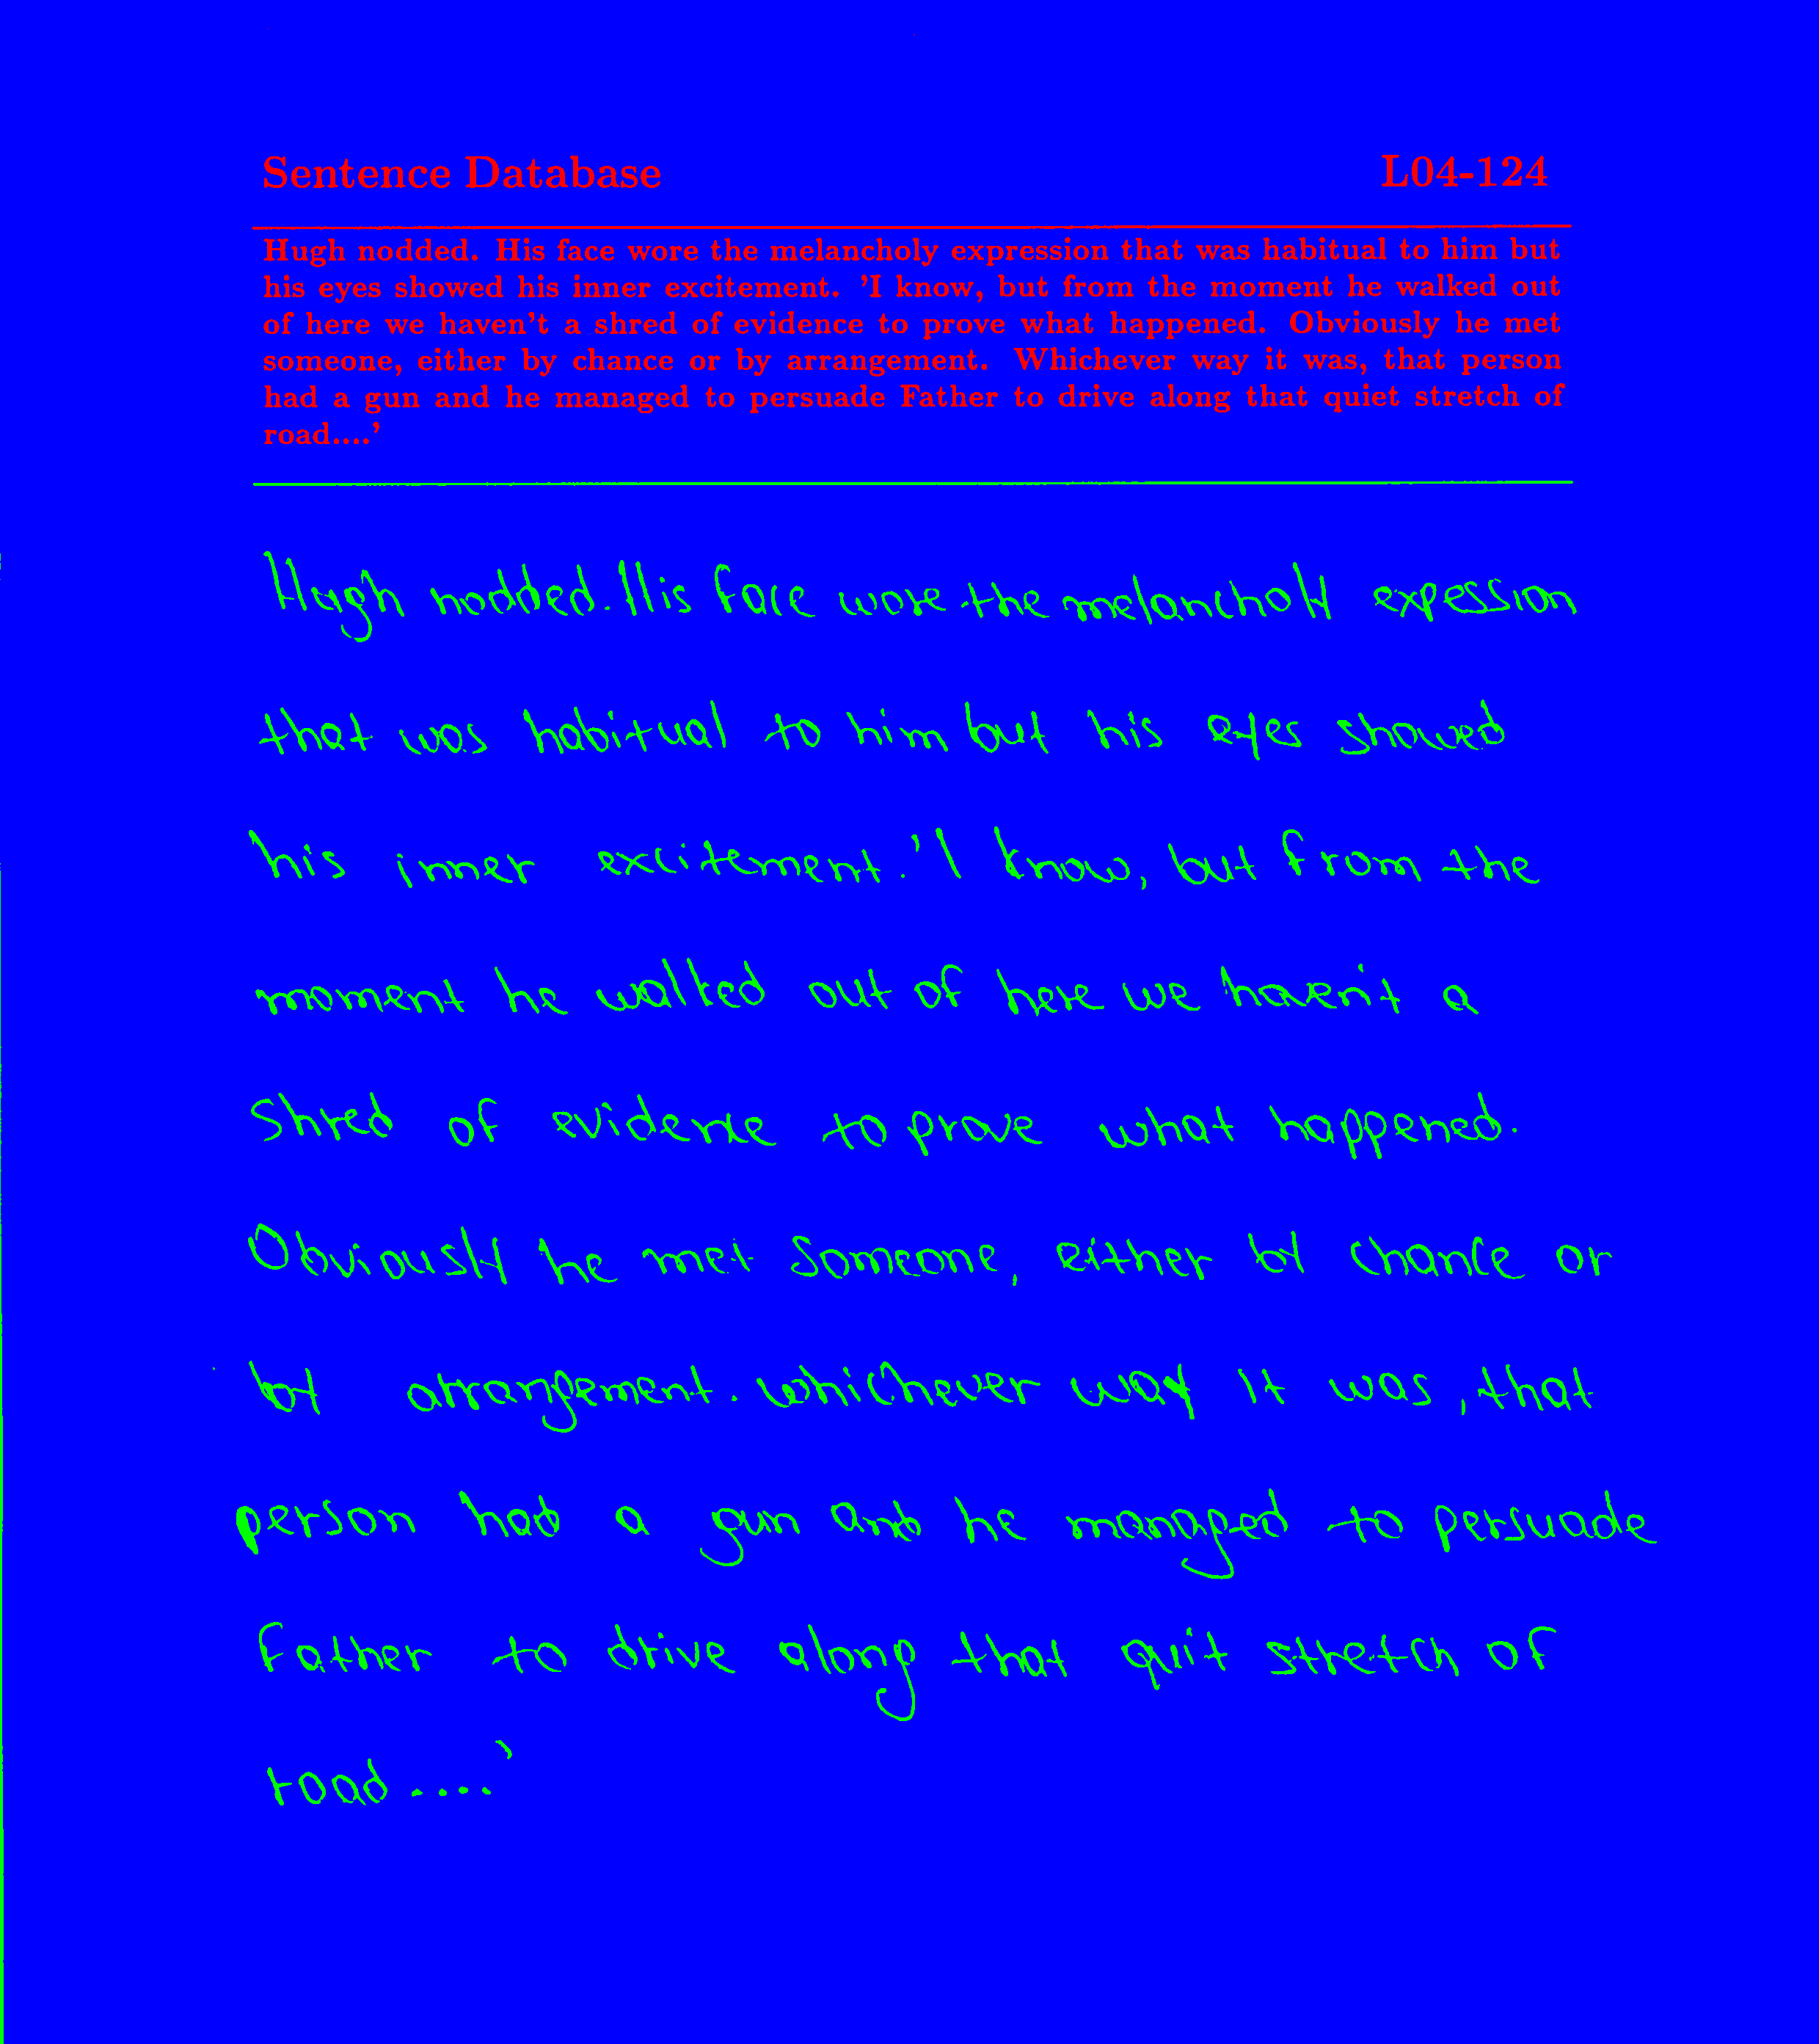 Sentence Database L04-124
Hugh nodded. His face wore the melancholy expression that was habitual to him but
his eyes showed his inner excitement. 'I know, but from the moment he walked out
of here we haven't a shred of evidence to prove what happened. Obviously he met
someone, either by chance or by arrangement. Whichever way it was, that person
had a gun and he managed to persuade Father to drive along that quiet stretch of
road....'
Hugh nodded. His face wore the melancholy expession
that was habitual to him but his eyes showed
his inner excitement. 'I know, but from the
moment he walked out of here we haven't a
shred of evidence to prove what happened.
Obviously he met someone, either by chance or
by arrangement. whichever way it was, that
person had a gun and he managed to persuade
Father to drive along that quit stretch of
road....'